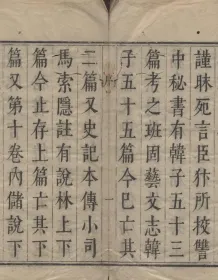 謹昧死言臣犿所校讐
中秘書有韓子五十三
篇考之班固藝文志韓
子五十五篇今已亡其
二篇又史記本傳小司
馬索隱註有說林上下
篇今止存上篇亡其下
篇又第十卷內儲說下